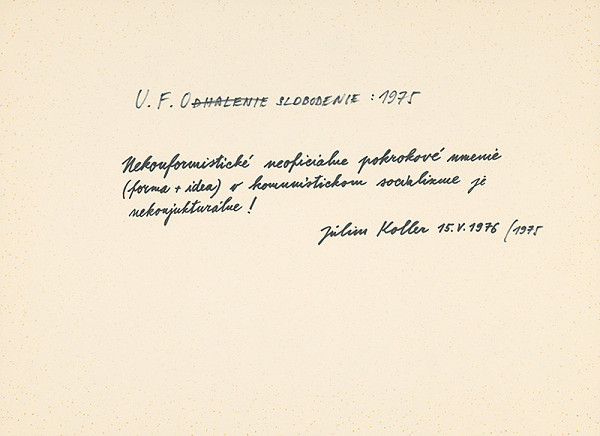 U. F. ODHALENIE SLOBODENIE : 1975
Nekonformistické neoficiálne pokrokové umenie
(forma + idea) v komunistickom socializme je
nekonjukturálne !
Július Koller 15.V.1976 /1975